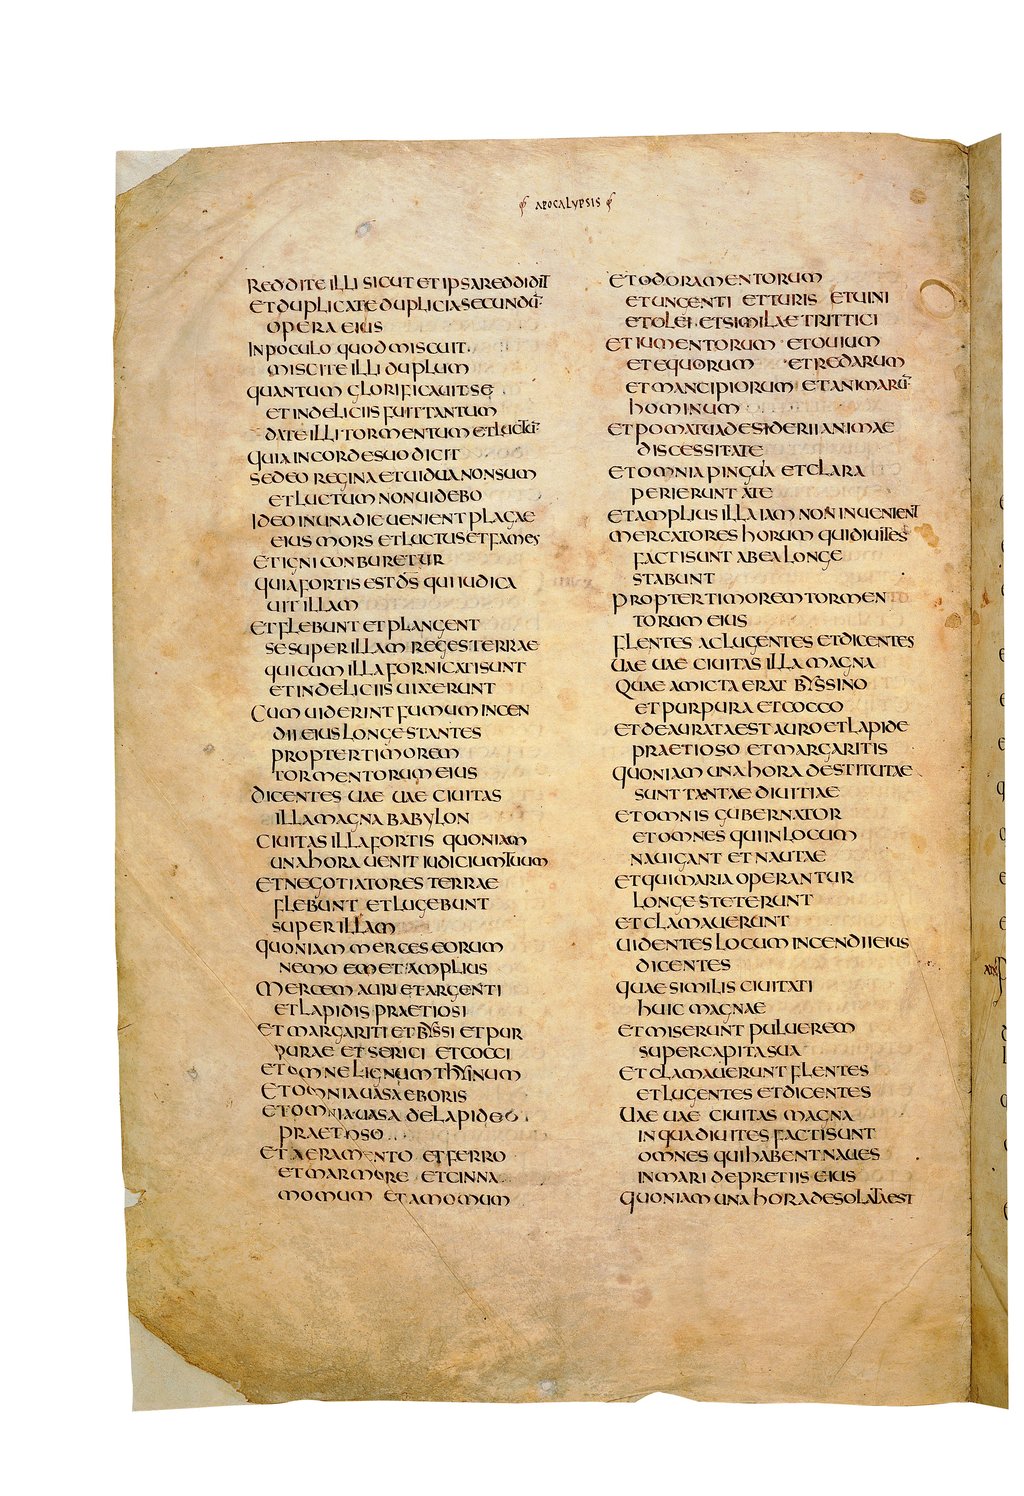 APOCALYPSIS
REDDITE ILLI SICUT ET IPSA REDDIDIT
ET DUPLICATE DUPLICIA SECUNDŪ
OPERA EIUS
IN POCULO QUOD MISCUIT
MISCITE ILLI DUPLUM
QUANTUM GLORIFICAUIT SE
ET IN DELICIIS FUIT TANTUM
DATE ILLI TORMENTUM ET LUCTŪ
QUIA IN CORDE SUO DICIT
SEDEO REGINA ET UIDUA NON SUM
ET LUCTUM NON UIDEBO
IDEO IN UNA DIE UENIENT PLAGAE
EIUS MORS ET LUCTUS ET FAMES
ET IGNI CONBURETUR
QUIA FORTIS EST D̄S QUI IUDICA
UIT ILLAM
ET FLEBUNT ET PLANGENT
SE SUPER ILLAM REGES TERRAE
QUI CUM ILLA FORNICATI SUNT
ET IN DELICIIS UIXERUNT
CUM UIDERINT FUMUM INCEN
DII EIUS LONGE STANTES
PROPTER TIMOREM
TORMENTORUM EIUS
DICENTES UAE UAE CIUITAS
ILLA MAGNA BABYLON
CIUITAS ILLA FORTIS QUONIAM
UNA HORA UENIT IUDICIUM TUUM
ET NEGOTIATORES TERRAE
FLEBUNT ET LUGEBUNT
SUPER ILLAM
QUONIAM MERCES EORUM
NEMO EMET AMPLIUS
MERCEM AURI ET ARGENTI
ET LAPIDIS PRAETIOSI
ET MARGARITI ET BYSSI ET PUR
PURAE ET SERICI ET COCCI
ET OMNE LIGNUM THYINUM
ET OMNIA UASA EBORIS
ET OMNIA UASA DE LAPIDEO
PRAETIOSO
ET AERAMENTO ET FERRO
ET MARMORE ET CINNA
MOMUM ET AMOMUM
ET ODORAMENTORUM
ET UNGENTI ET TURIS ET UINI
ET OLEI ET SIMILAE TRITTICI
ET IUMENTORUM ET OUIUM
ET EQUORUM ET REDARUM
ET MANCIPIORUM ET ANIMARŪ
HOMINUM
ET POMA TUA DESIDERII ANIMAE
DISCESSIT A TE
ET OMNIA PINGUA ET CLARA
PERIERUNT A TE
ET AMPLIUS ILLA IAM NON INUENIENT
MERCATORES HORUM QUI DIUITES
FACTI SUNT AB EA LONGE
STABUNT
PROPTER TIMOREM TORMEN
TORUM EIUS
FLENTES AC LUGENTES ET DICENTES
UAE UAE CIUITAS ILLA MAGNA
QUAE AMICTA ERAT BYSSINO
ET PURPURA ET COCCO
ET DEAURATA EST AURO ET LAPIDE
PRAETIOSO ET MARGARITIS
QUONIAM UNA HORA DESTITUTAE
SUNT TANTAE DIUITIAE
ET OMNIS GUBERNATOR
ET OMNES QUI IN LOCUM
NAUIGANT ET NAUTAE
ET QUI MARIA OPERANTUR
LONGE STETERUNT
ET CLAMAUERUNT
UIDENTES LOCUM INCENDII EIUS
DICENTES
QUAE SIMILIS CIUITATI
HUIC MAGNAE
ET MISERUNT PULUEREM
SUPER CAPITA SUA
ET CLAMAUERUNT FLENTES
ET LUGENTES ET DICENTES
UAE UAE CIUITAS MAGNA
IN QUA DIUITES FACTI SUNT
OMNES QUI HABENT NAUES
IN MARI DE PRETIIS EIUS
QUONIAM UNA HORA DESOLATA EST